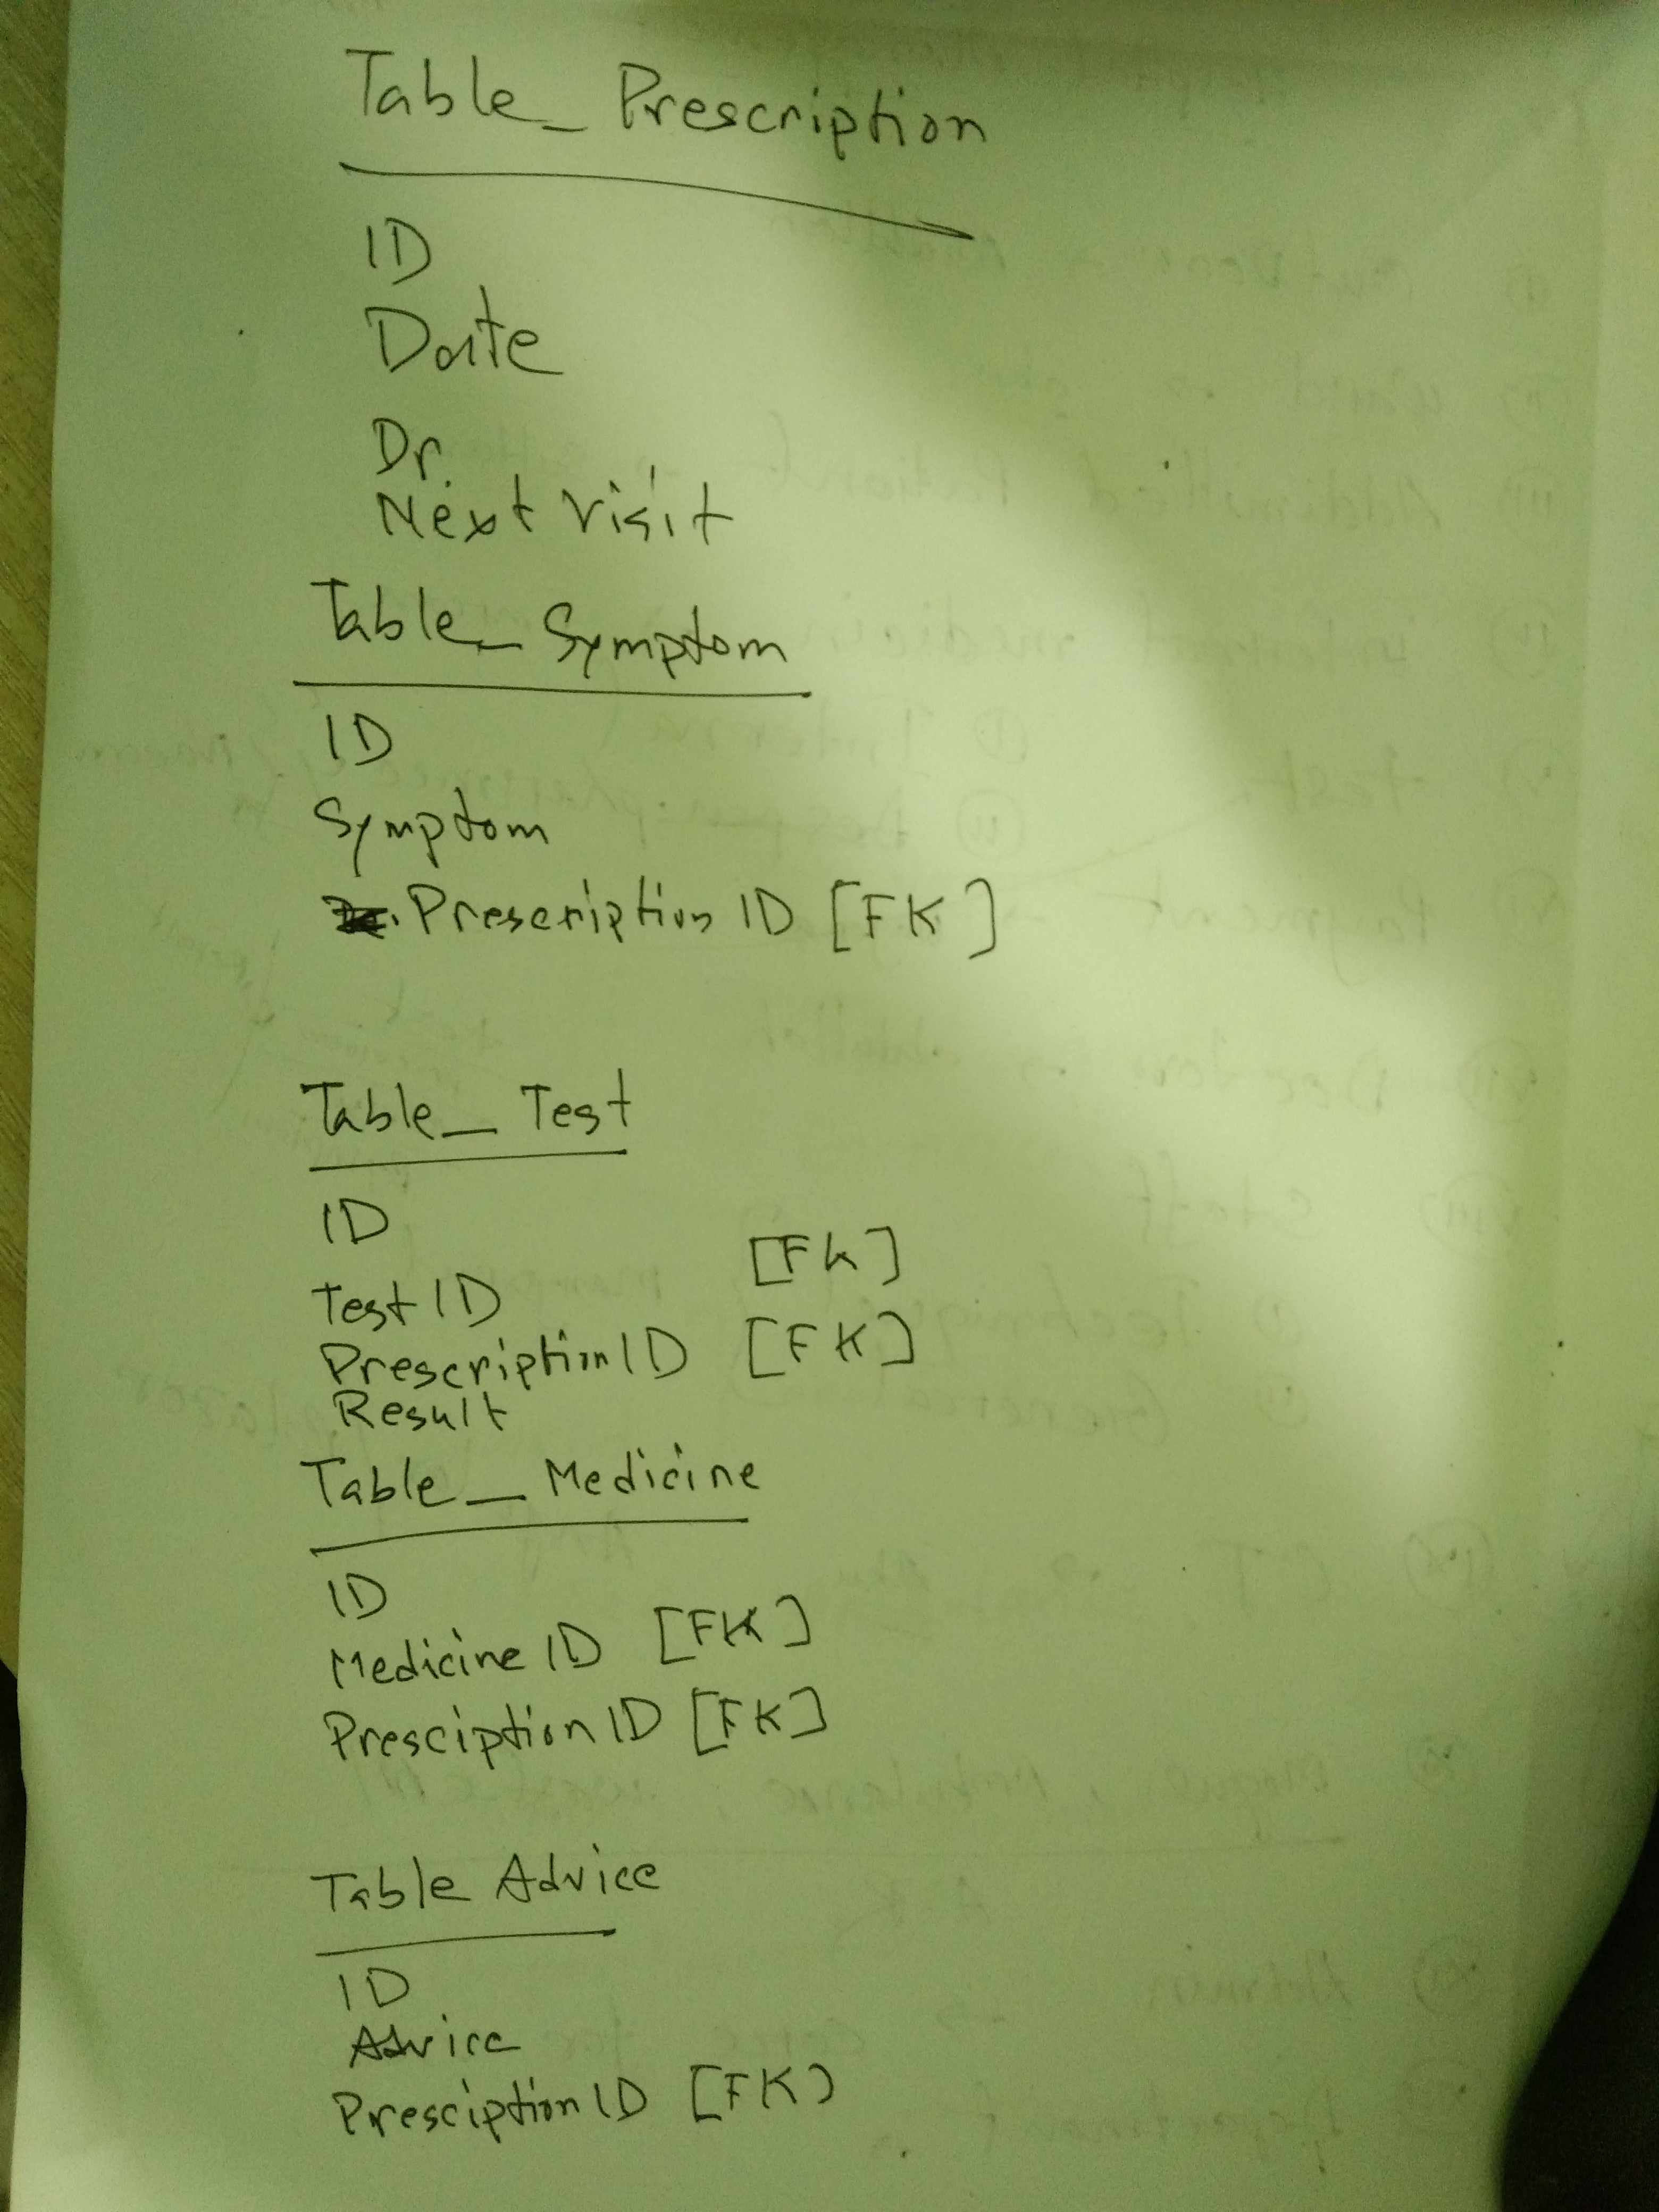 Table_ Prescription
ID
Date
Dr.
Next Visit
Table_ Symptom
ID
Symptom
Prescription ID [FK]
Table_ Test
ID
Test ID [FK]
Prescription ID [FK]
Result
Table_ Medicine
ID
Medicine ID [FK]
Presciption ID [FK]
Table Advice
ID
Advice
Presciption ID [FK)